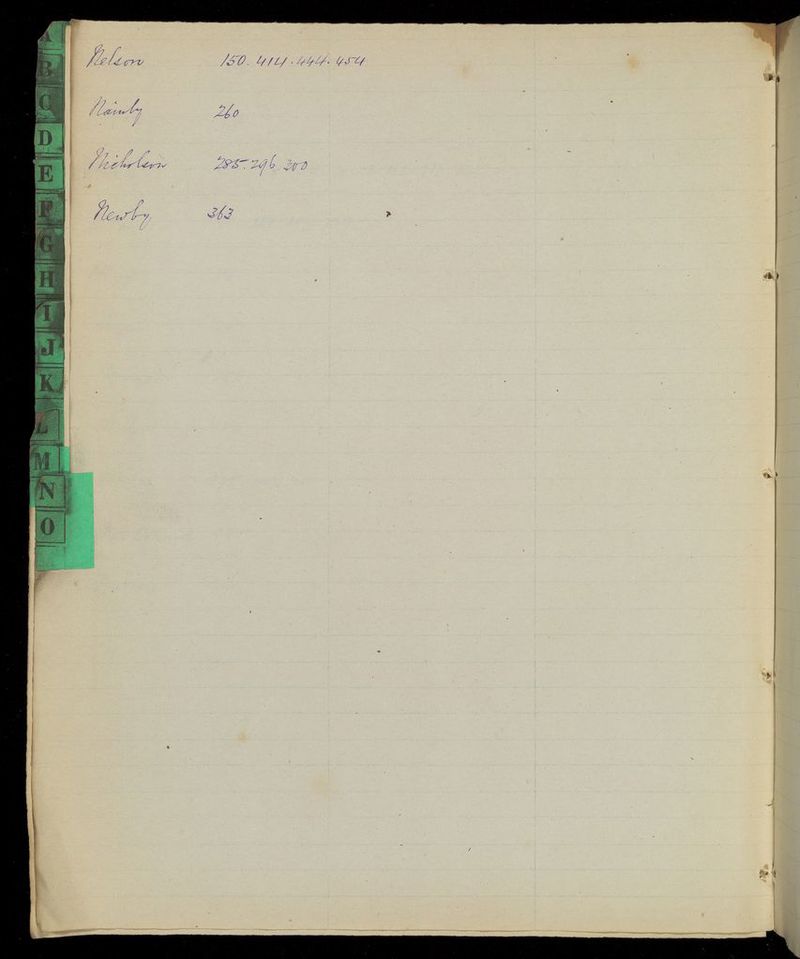 A
B
C
D
E
F
G
H
I
J
K
L
M
N
O
Nelson 150. 414. 444. 454
Namby 260
Nicholson 285. 296. 300
Newby 363